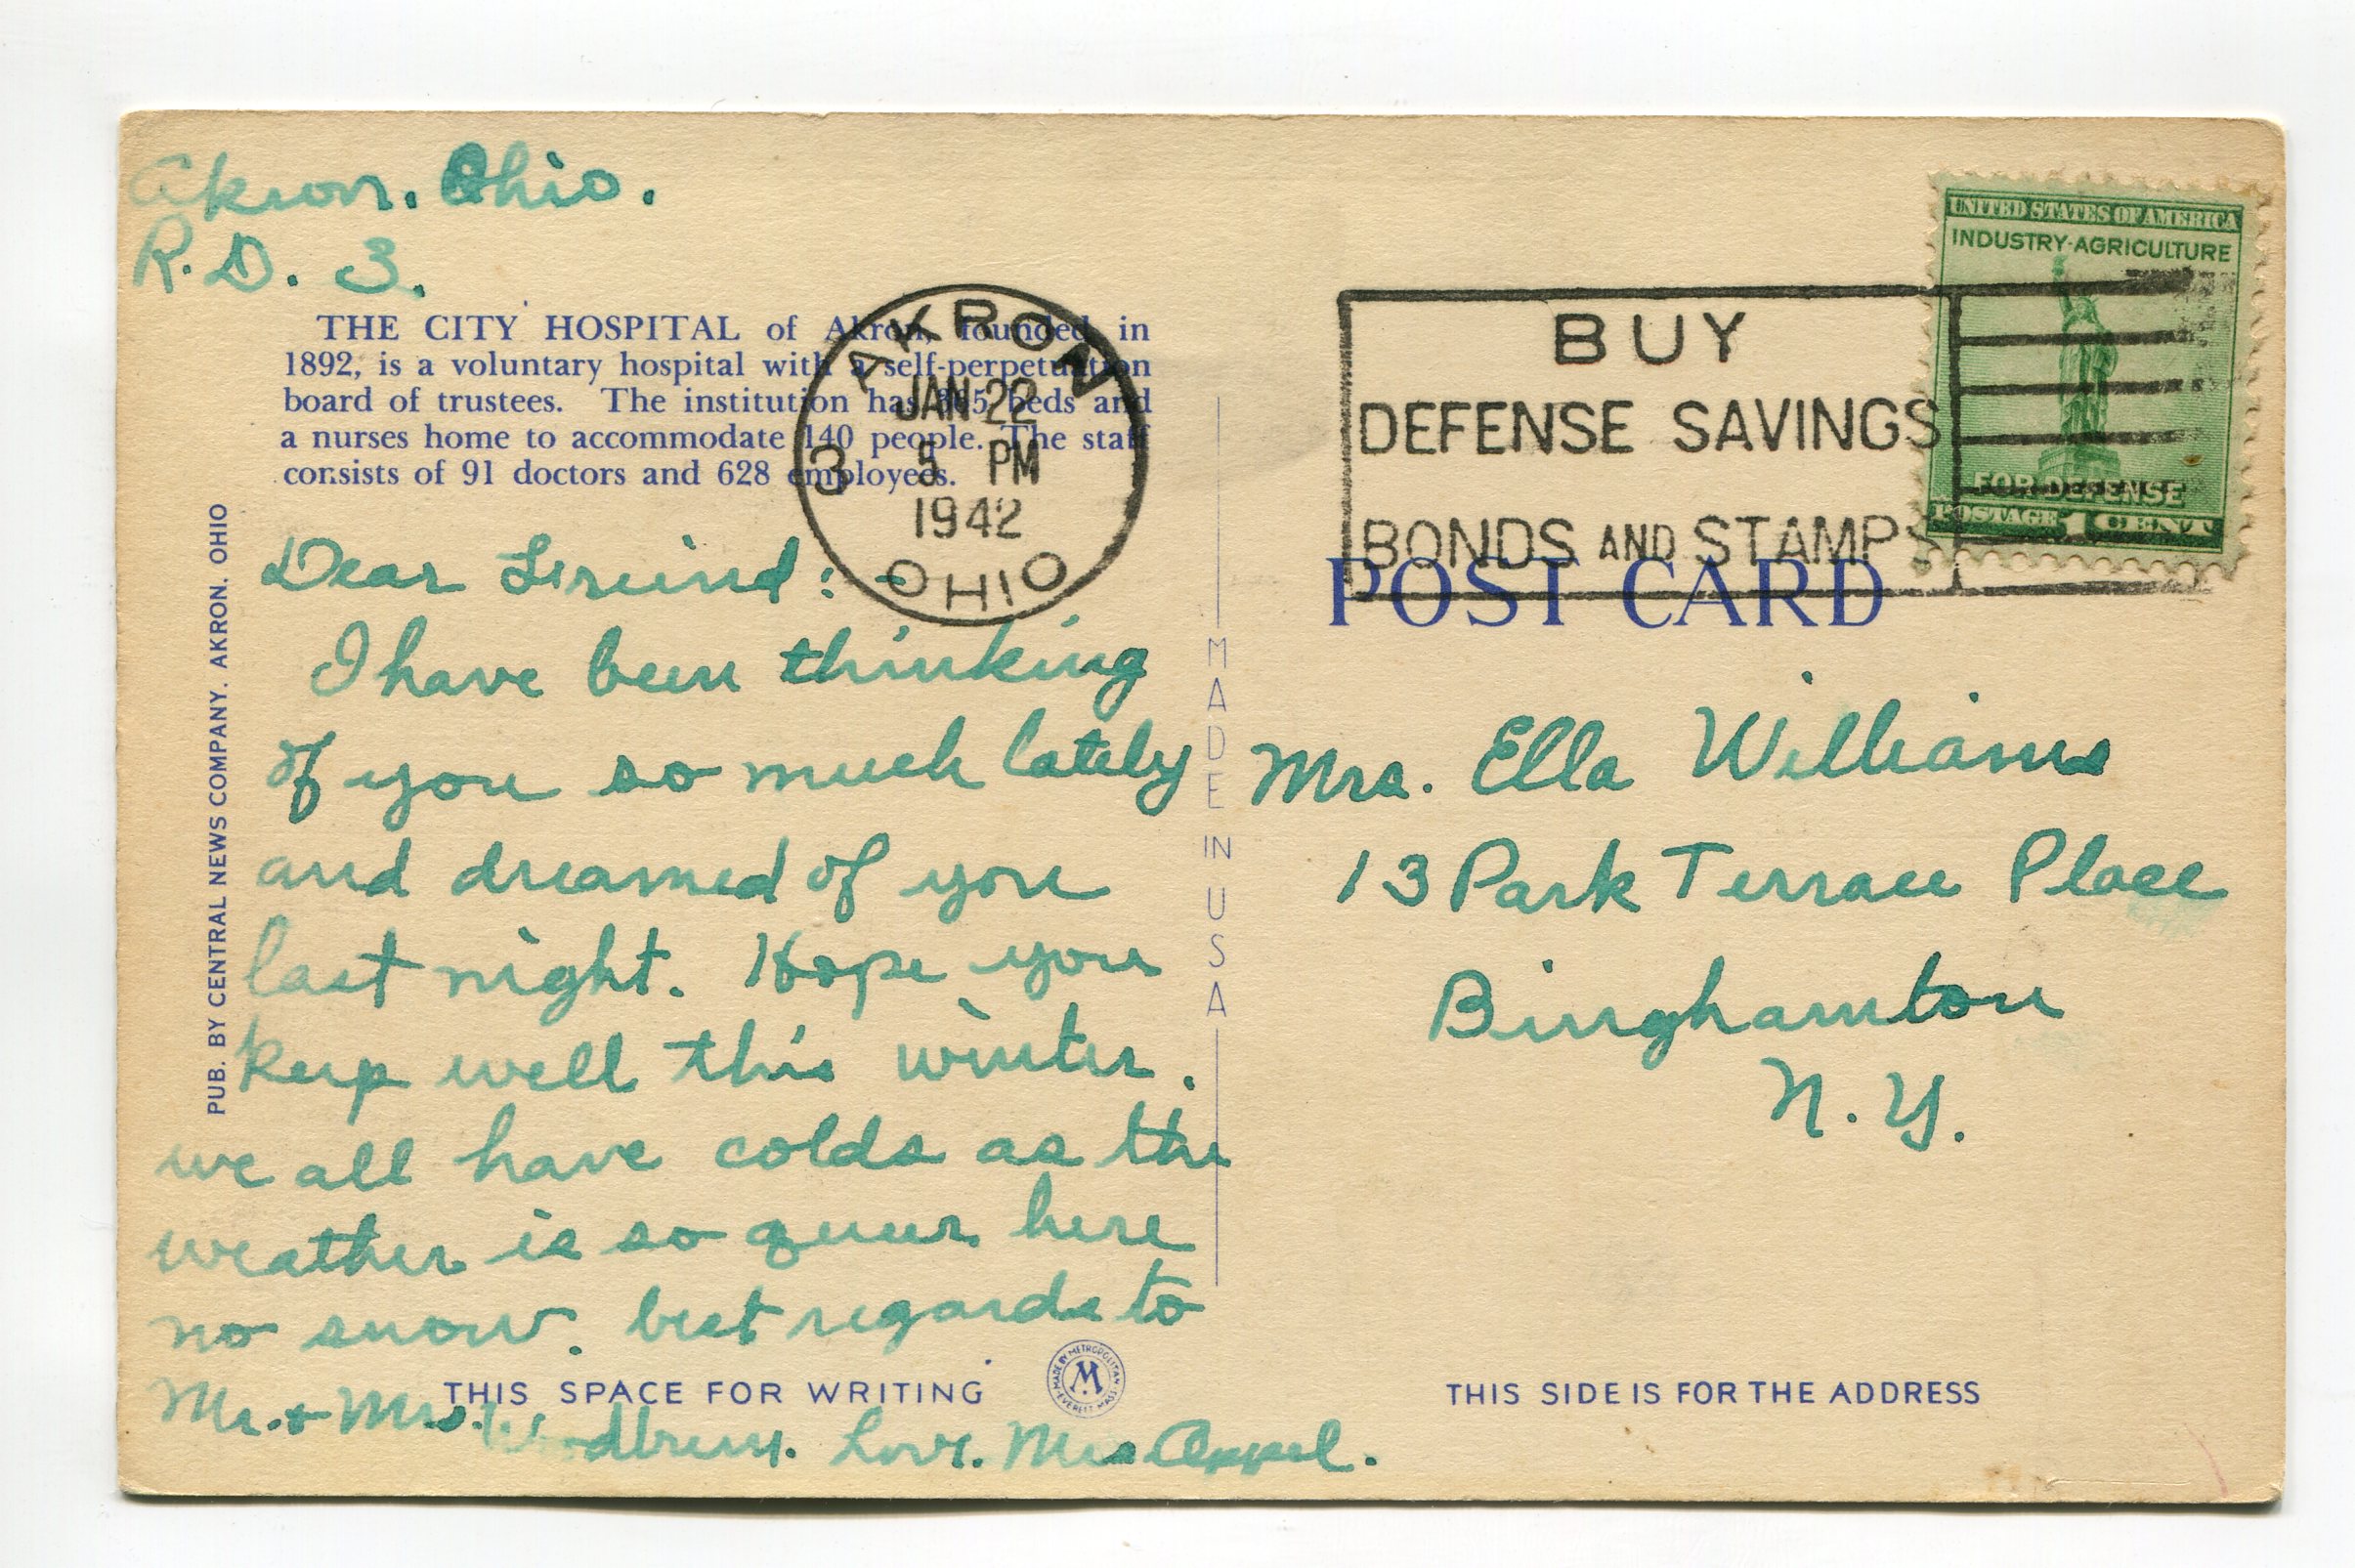 Akron. Ohio.
R. D. 3.
THE CITY HOSPITAL of Akron, founded in
1892, is a voluntary hospital with a self-perpetuation
board of trustees. The institution has beds and
a nurses home to accommodate 140 people. The staff
consists of 91 doctors and 628 employees.
AKRON
JAN 22
5 PM
1942
OHIO
3
PUB. BY CENTRAL NEWS COMPANY, AKRON, OHIO
Dear Freind: -
I have been thinking
of you so much lately
and dreamed of you
last night. Hope you
keep well this winter.
we all have colds as the
weather is so queer here
no snow. best regards to
Mr. + Mrs. Love. Mrs Appel.
THIS SPACE FOR WRITING
MADE BY METROPOLITAN
M
EVERETT MASS.
MADE IN USA
BUY
DEFENSE SAVINGS
BONDS AND STAMPS
UNITED STATES OF AMERICA
INDUSTRY·AGRICULTURE
FOR DEFENSE
POSTAGE 1 CENT
POST CARD
Mrs. Ella Williams
13 Park Terrace Place
Binghamton
N. Y.
THIS SIDE IS FOR THE ADDRESS